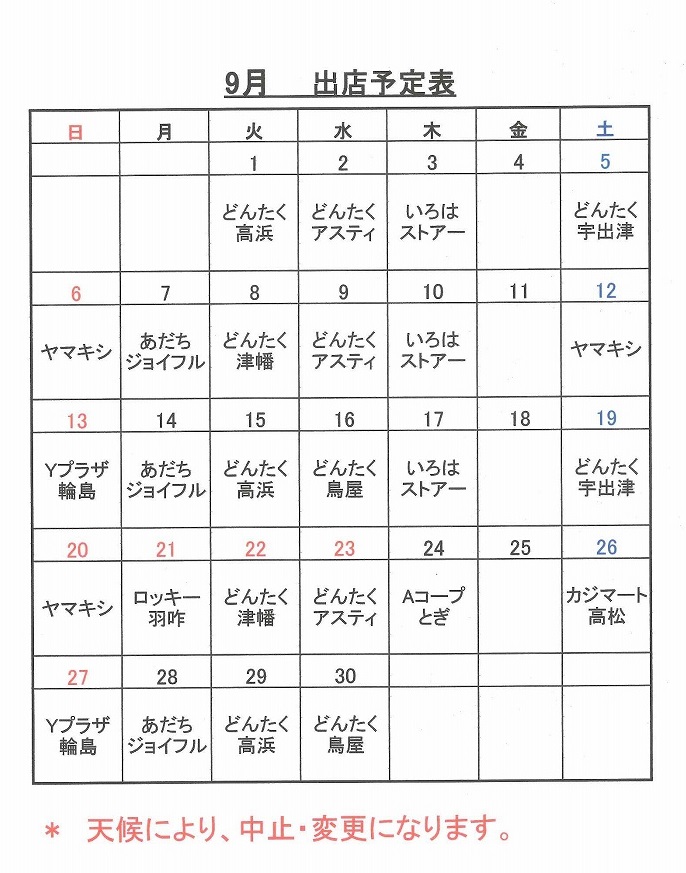 9月 出店予定表
日 月 火 水 木 金 土
1 2 3 4 5
どんたく どんたく いろは どんたく
高浜 アスティ ストアー 宇出津
6 7 8 9 10 11 12
ヤマキシ あだち どんたく どんたく いろは ヤマキシ
ジョイフル 津幡 アスティ ストアー
13 14 15 16 17 18 19
Yプラザ あだち どんたく どんたく いろは どんたく
輪島 ジョイフル 高浜 鳥屋 ストアー 宇出津
20 21 22 23 24 25 26
ヤマキシ ロッキー どんたく どんたく Aコープ カジマート
羽咋 津幡 アスティ とぎ 高松
27 28 29 30
Yプラザ あだち どんたく どんたく
輪島 ジョイフル 高浜 鳥屋
* 天候により、中止・変更になります。